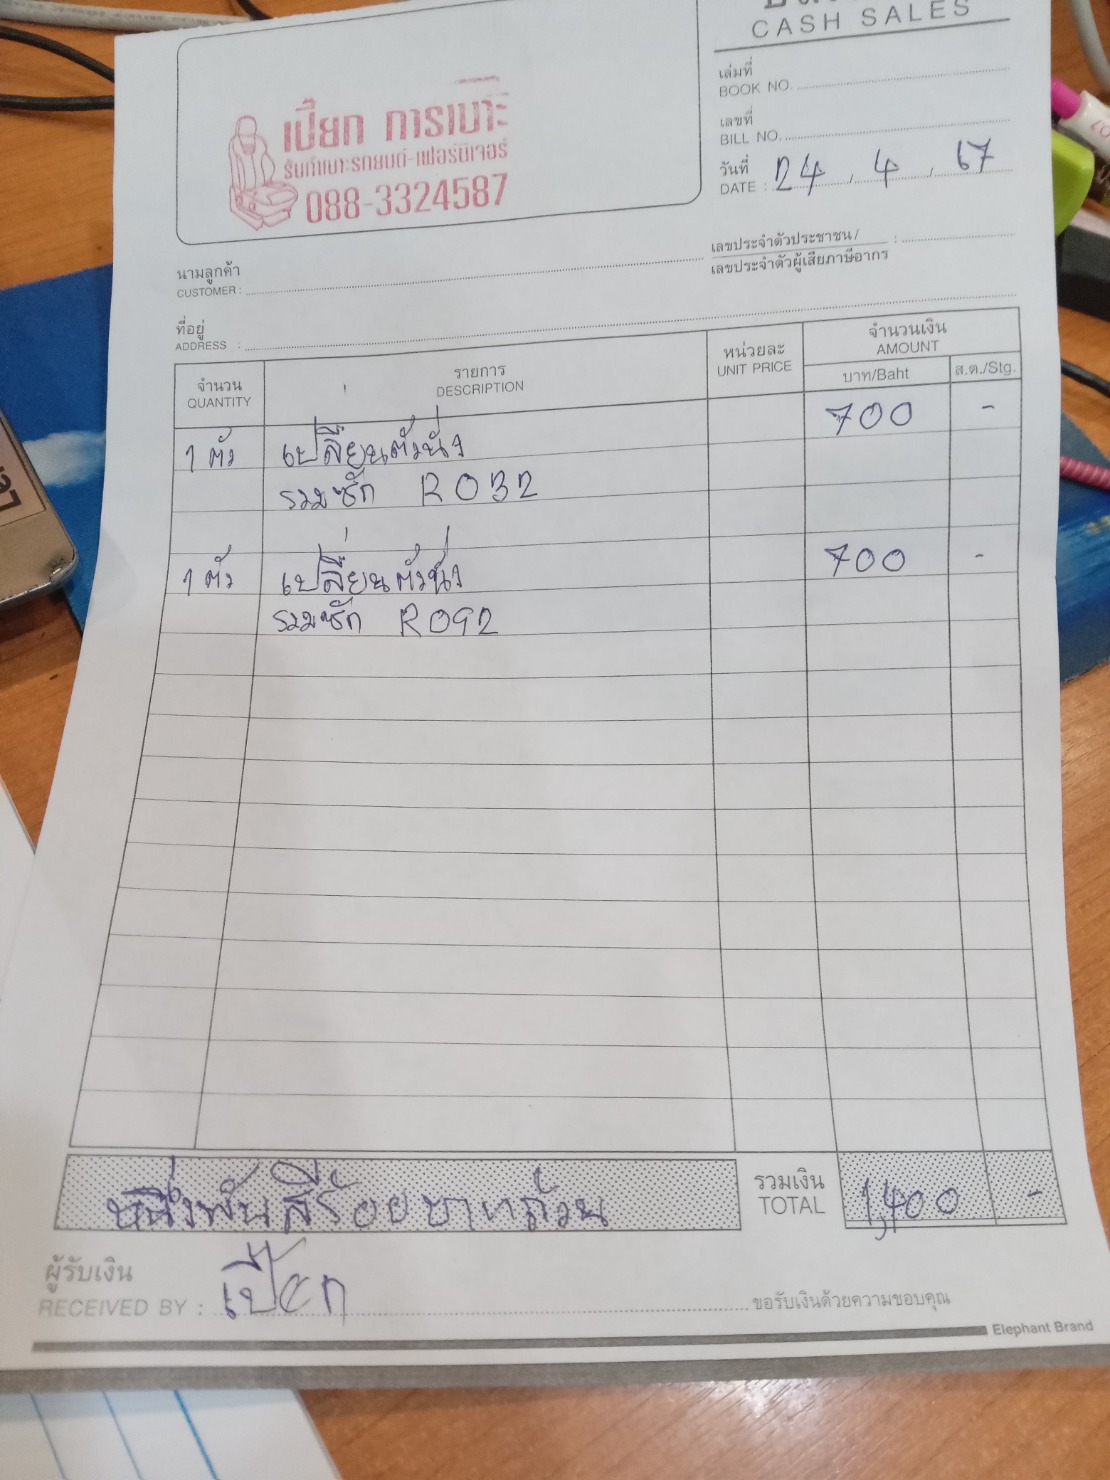 CASH SALES
เล่มที่
BOOK NO.
เลขที่
BILL NO.
วันที่
DATE : 24, 4, 67
เปี๊ยก การเบาะ
รับทำเบาะรถยนต์-เฟอร์นิเจอร์
088-3324587
นามลูกค้า
CUSTOMER :
เลขประจำตัวประชาชน/ :
เลขประจำตัวผู้เสียภาษีอากร
ที่อยู่
ADDRESS :
จำนวน รายการ หน่วยละ จำนวนเงิน
QUANTITY DESCRIPTION UNIT PRICE AMOUNT
บาท/Baht ส.ต./Stg.
1 ตัว เปลี่ยนตัวนั่ง 700 -
รวมซัก R032
1 ตัว เปลี่ยนตัวนั่ง 700 -
รวมซัก R092
หนึ่งพันสี่ร้อยบาทถ้วน
รวมเงิน
TOTAL 1,400 -
ผู้รับเงิน
RECEIVED BY : เปี๊ยก
ขอรับเงินด้วยความขอบคุณ
Elephant Brand